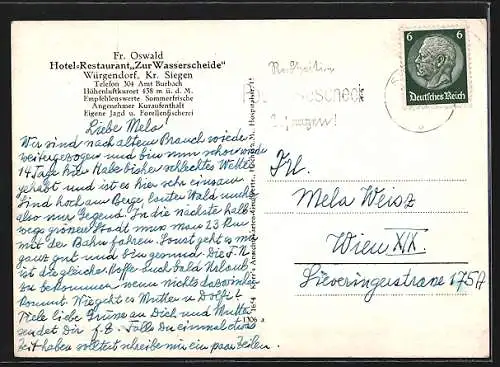 Fr. Oswald
Hotel-Restaurant „Zur Wasserscheide"
Würgendorf, Kr. Siegen
Telefon 304 Amt Burbach
Höhenluftkurort 438 m ü. d. M.
Empfehlenswerte Sommerfrische
Angenehmer Kuraufenthalt
Eigene Jagd u. Forellenfischerei
Liebe Mela!
Wir sind nach altem Brauch wieder
weitergezogen und bin nun schon wieder
14 Tag hier. Habe bisher schlechtes Wetter
gehabt und ist es hier sehr einsam
Sind hoch am Berge, lauter Wald und
also nur Gegend. In die nächste halb-
wegs größere Stadt muss man 23 km
mit der Bahn fahren. Sonst geht es mir
ganz gut und bin gesund. Die F. N.
ist die gleiche. Hoffe auch bald Urlaub
zu bekommen, wenn nichts dazwischen
kommt. Wie geht es Mutter u. Dolfi?
Viele liebe Grüsse an Dich und Mutter
sendet Dir Falls Du einmal etwas
Zeit haben solltest schreibe mir ein paar Zeilen.
1306 a
6 6
Deutsches Reich
Rechtzeitig
Frl.
Mela Weisz
Wien XIX.
Sieveringerstrasse 175A